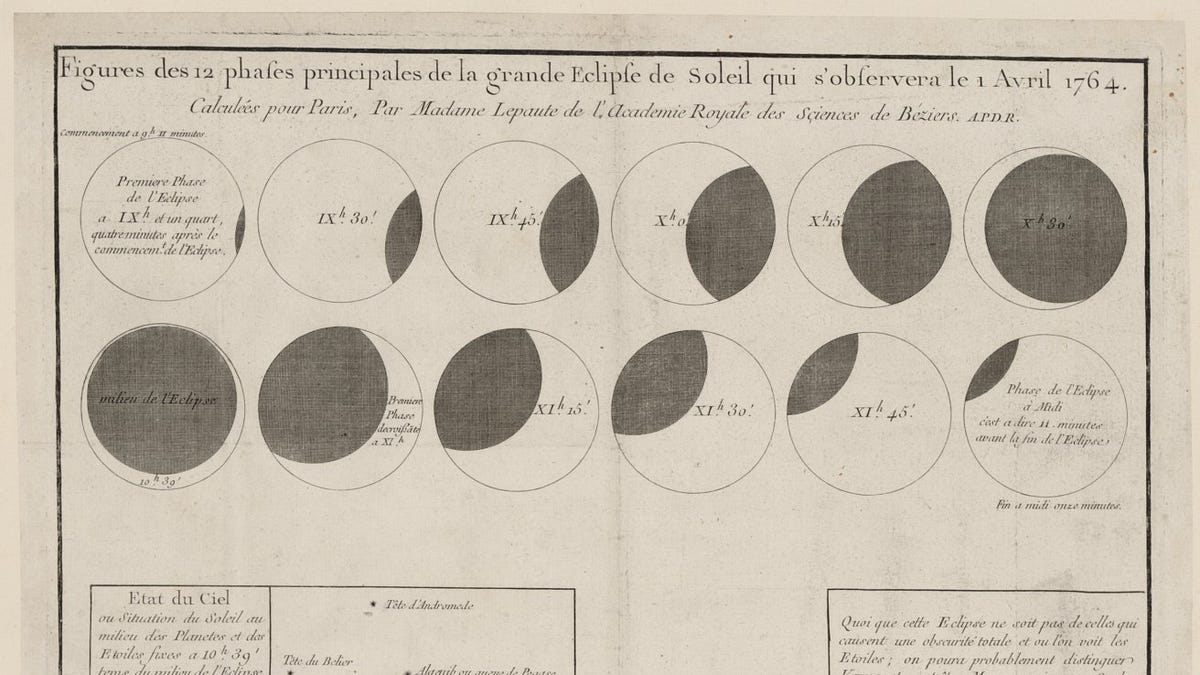 Figures des 12 phaſes principales de la grande Eclipſe de Soleil qui s'obſervera le 1 Avril 1764.
Calculées pour Paris, Par Madame Lepaute de l'Academie Royale des Sciences de Béziers. A.P.D.R.
Commencement a 9h 11 minutes.
Premiere Phase
de l'Eclipse
a IXh et un quart,
quatre minutes après le
commencemt de l'Eclipse.
IXh 30'
IXh 45'
Xh 0'
Xh 15'
Xh 30'
milieu de l'Eclipse
10h 39'
Premiere
Phase
decroissāte
a XIh
XIh 15'
XIh 30'
XIh 45'
Phase de l'Eclipse
à Midi
c'est a dire 11 minutes
avant la fin de l'Eclipse
Fin a midi onze minutes.
Etat du Ciel
ou Situation du Soleil au
milieu des Planetes et des
Etoiles fixes a 10h 39'
tems du milieu de l'Eclipse
Tête d'Andromede
Tête du Belier
Algenib ou queue de Pegase
Quoi que cette Eclipse ne soit pas de celles qui
causent une obscurité totale et ou l'on voit les
Etoiles ; on poura probablement distinguer